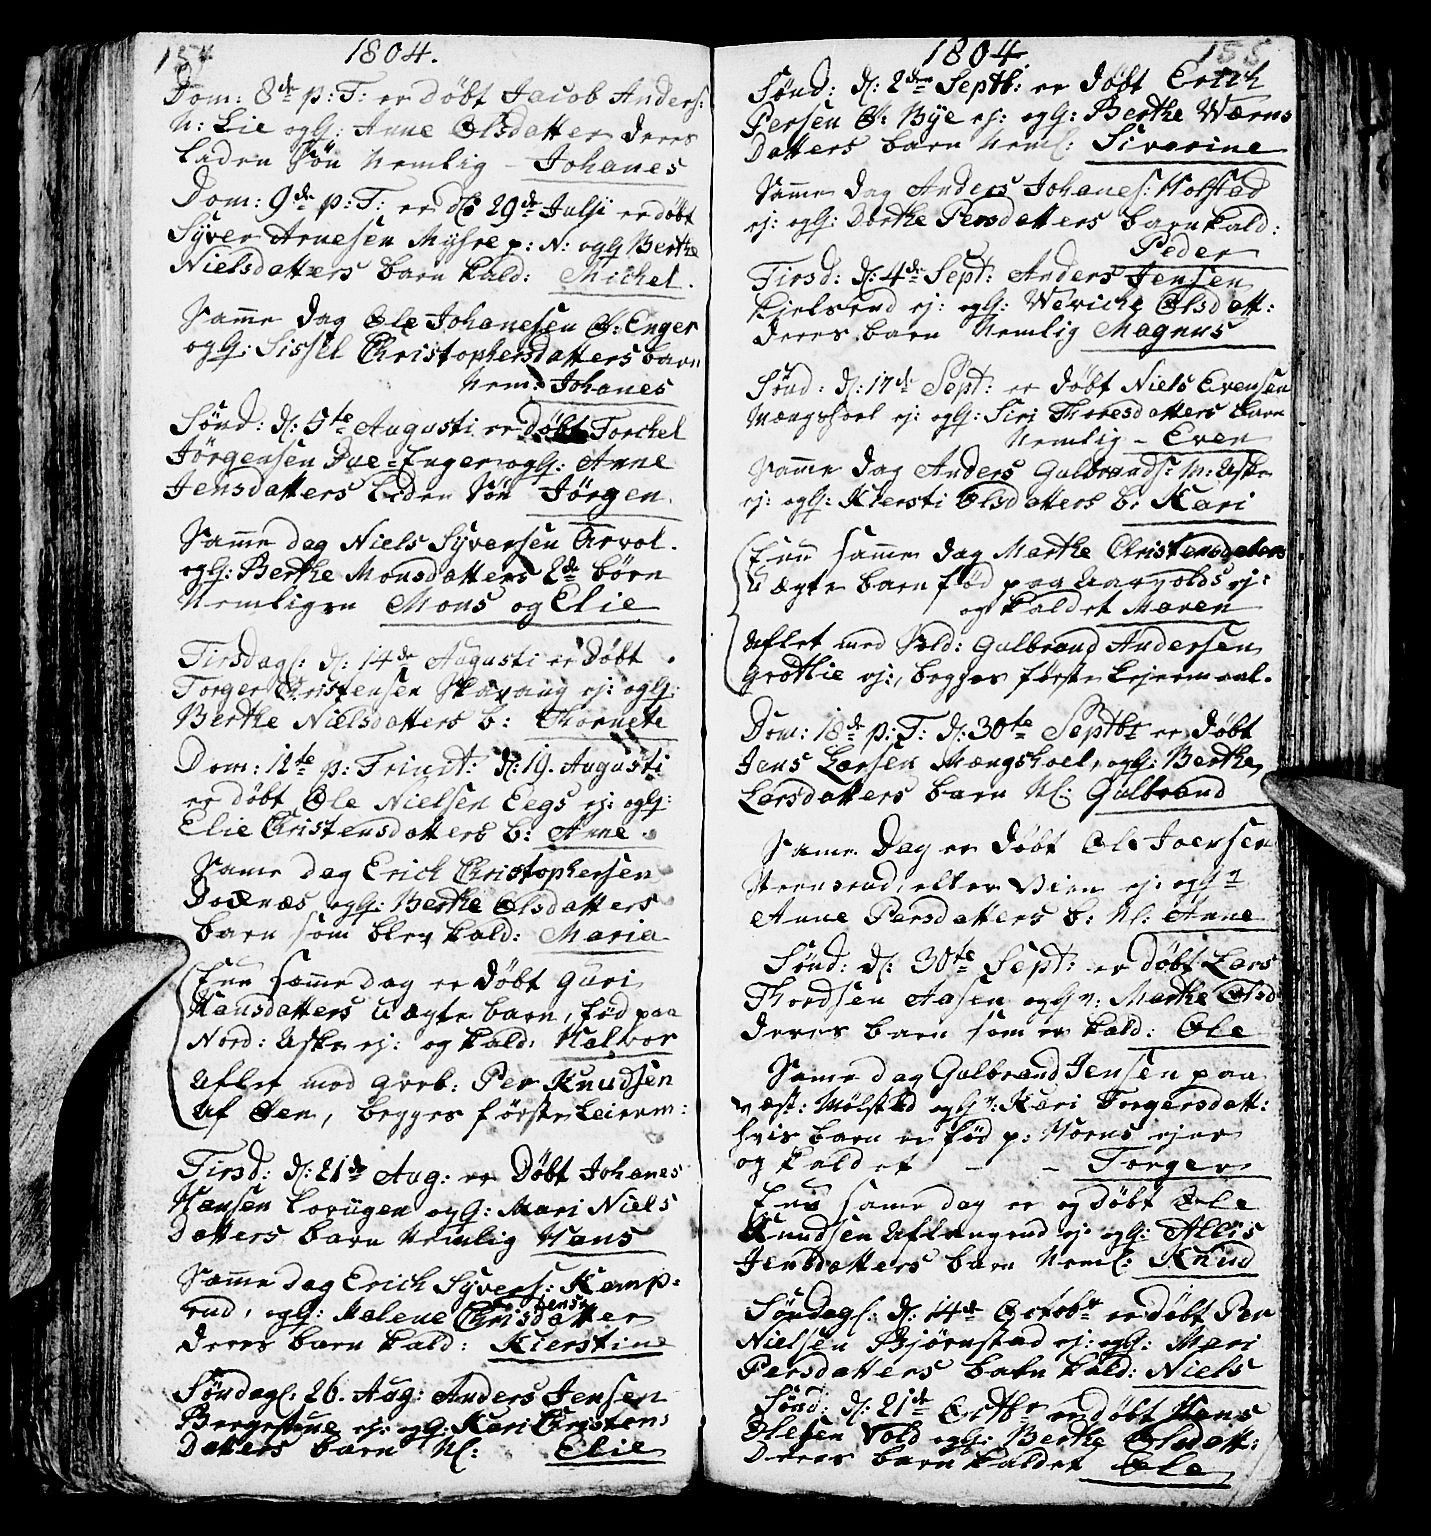 154 1804.
Dom: 8de p: T: er döbt Jacob Anders:
N: Lie og G: Anne Olsdatter deres
Liden Sön Nemlig - Johanes
Dom: 9de p: T: er d: 29de Julji er döbt
Syver Arnesen Myhre p: N: og G Berthe
Nielsdatters barn kald: Michel.
Samme dag Ole Johanesen O: Enger
og G: Sissel Christophersdatters barn
Nem: Johanes
Sönd: d: 5te Augusti er döbt Torchel
Jörgensen Due-Enger og G: Anne
Jensdatters Liden Sön Jörgen.
Samme dag Niels Syversen Arvol.
og G: Berthe Monsdatters 2de börn
Nemligen Mons og Elie
Tirsdag: d: 14de Augusti er döbt
Torger Christensen ej: og G:
Berthe Nielsdatters b: Thornete
Dom: 12te p: Trinit: d: 19. Augusti
er döbt Ole Nielsen Eegs ej: og G:
Elie Christensdatters b: Anne.
Same dag Erich Christophersen
og G: Berthe Olsdatters
barn som blev kald: Maria
Enn samme dag er döbt Guri
Hansdatters uægte barn, föd paa
Nord: Aske ej: og kald: Halvor
Aflet med Per Knudsen
Af Öen, begges förste Leierm:
Tirsd: d: 21de Aug: er Döbt Johanes
Hansen og G: Mari Niels
Datters barn Nemlig Hans
Samme dag Erich Syvers: Kemp-
rud, og G: Malene Christensdatter
deres barn kald: Kierstine
Söndag: 26. Aug: Anders Jensen
ej: og G: Kari Christens
Datters barn Nl: Elie
1804. 155
Sönd: d: 2den Septb: er döbt Erich
Persen O: Bye ej: og G: Berthe Wærns
Datters barn Neml: Siverine
Samme dag Anders Johanes: Holstad
ej: og G: Dorthe Persdatters barn kald:
Peder
Tirsd: d: 4de Sept: Anders Jensen
Kjelserud ej: og G: Weriche Olsdatt:
deres barn Nemlig Magnus
Sönd: d: 17de Sept: er döbt Niels Evensen
Mængshoel ej: og G: Siri Thoresdatters barn
Nemlig - Even
Samme dag Anders Gulbrands: N: Aske
ej: og G: Kiersti Olsdatters b: Kari
Enn samme dag Marthe Christensdaters
Uægte barn föd paa Aarvolds ej:
og kaldet Maren
Aflet med Sold: Gulbrand Andersen
Grötlie ej:, begges förste Lejermaal.
Dom: 18de p: T: d: 30te Septbr er döbt
Jens Larsen Mængshoel, og G: Berthe
Larsdatters barn Nl: Gulbrand
Same Dag er döbt Ole Iversen
Steensrud, eller Vien ej: og G:
Anne Persdatters b: Nl: Anne
Sönd: d: 30te Sept: er döbt Lars
Thordsen Aasen og G: Marthe Olsd
deres barn som er kald: Ole
Same dag Gulbrand Jensen paa
væst: Mölstad og G: Kari Torgersdatt:
hvis barn er föd p: Horns ejer
og kaldet - - Torger
Enn same dag er og döbt Ole
Knudsen ej: og G: Allis
Jensdatters barn Neml: Knud
Söndag: d: 14de Octobr er döbt Per
Nielsen Bjørnstad ej: og G: Mari
Persdatters barn kald: Niels
Sönd: d: 21de Octbr er döbt Hans
Olesen Vold og G: Berthe Olsdatt:
deres barn kaldet Ole